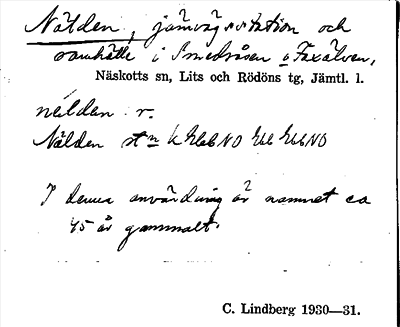 Nälden, järnvägsstation och
samhälle i
Näskotts sn, Lits och Rödöns tg, Jämtl. l.
nelden r.
Nälden stn k GebNO
I denna användning är namnet ca
45 år gammalt.
C. Lindberg 1930—31.